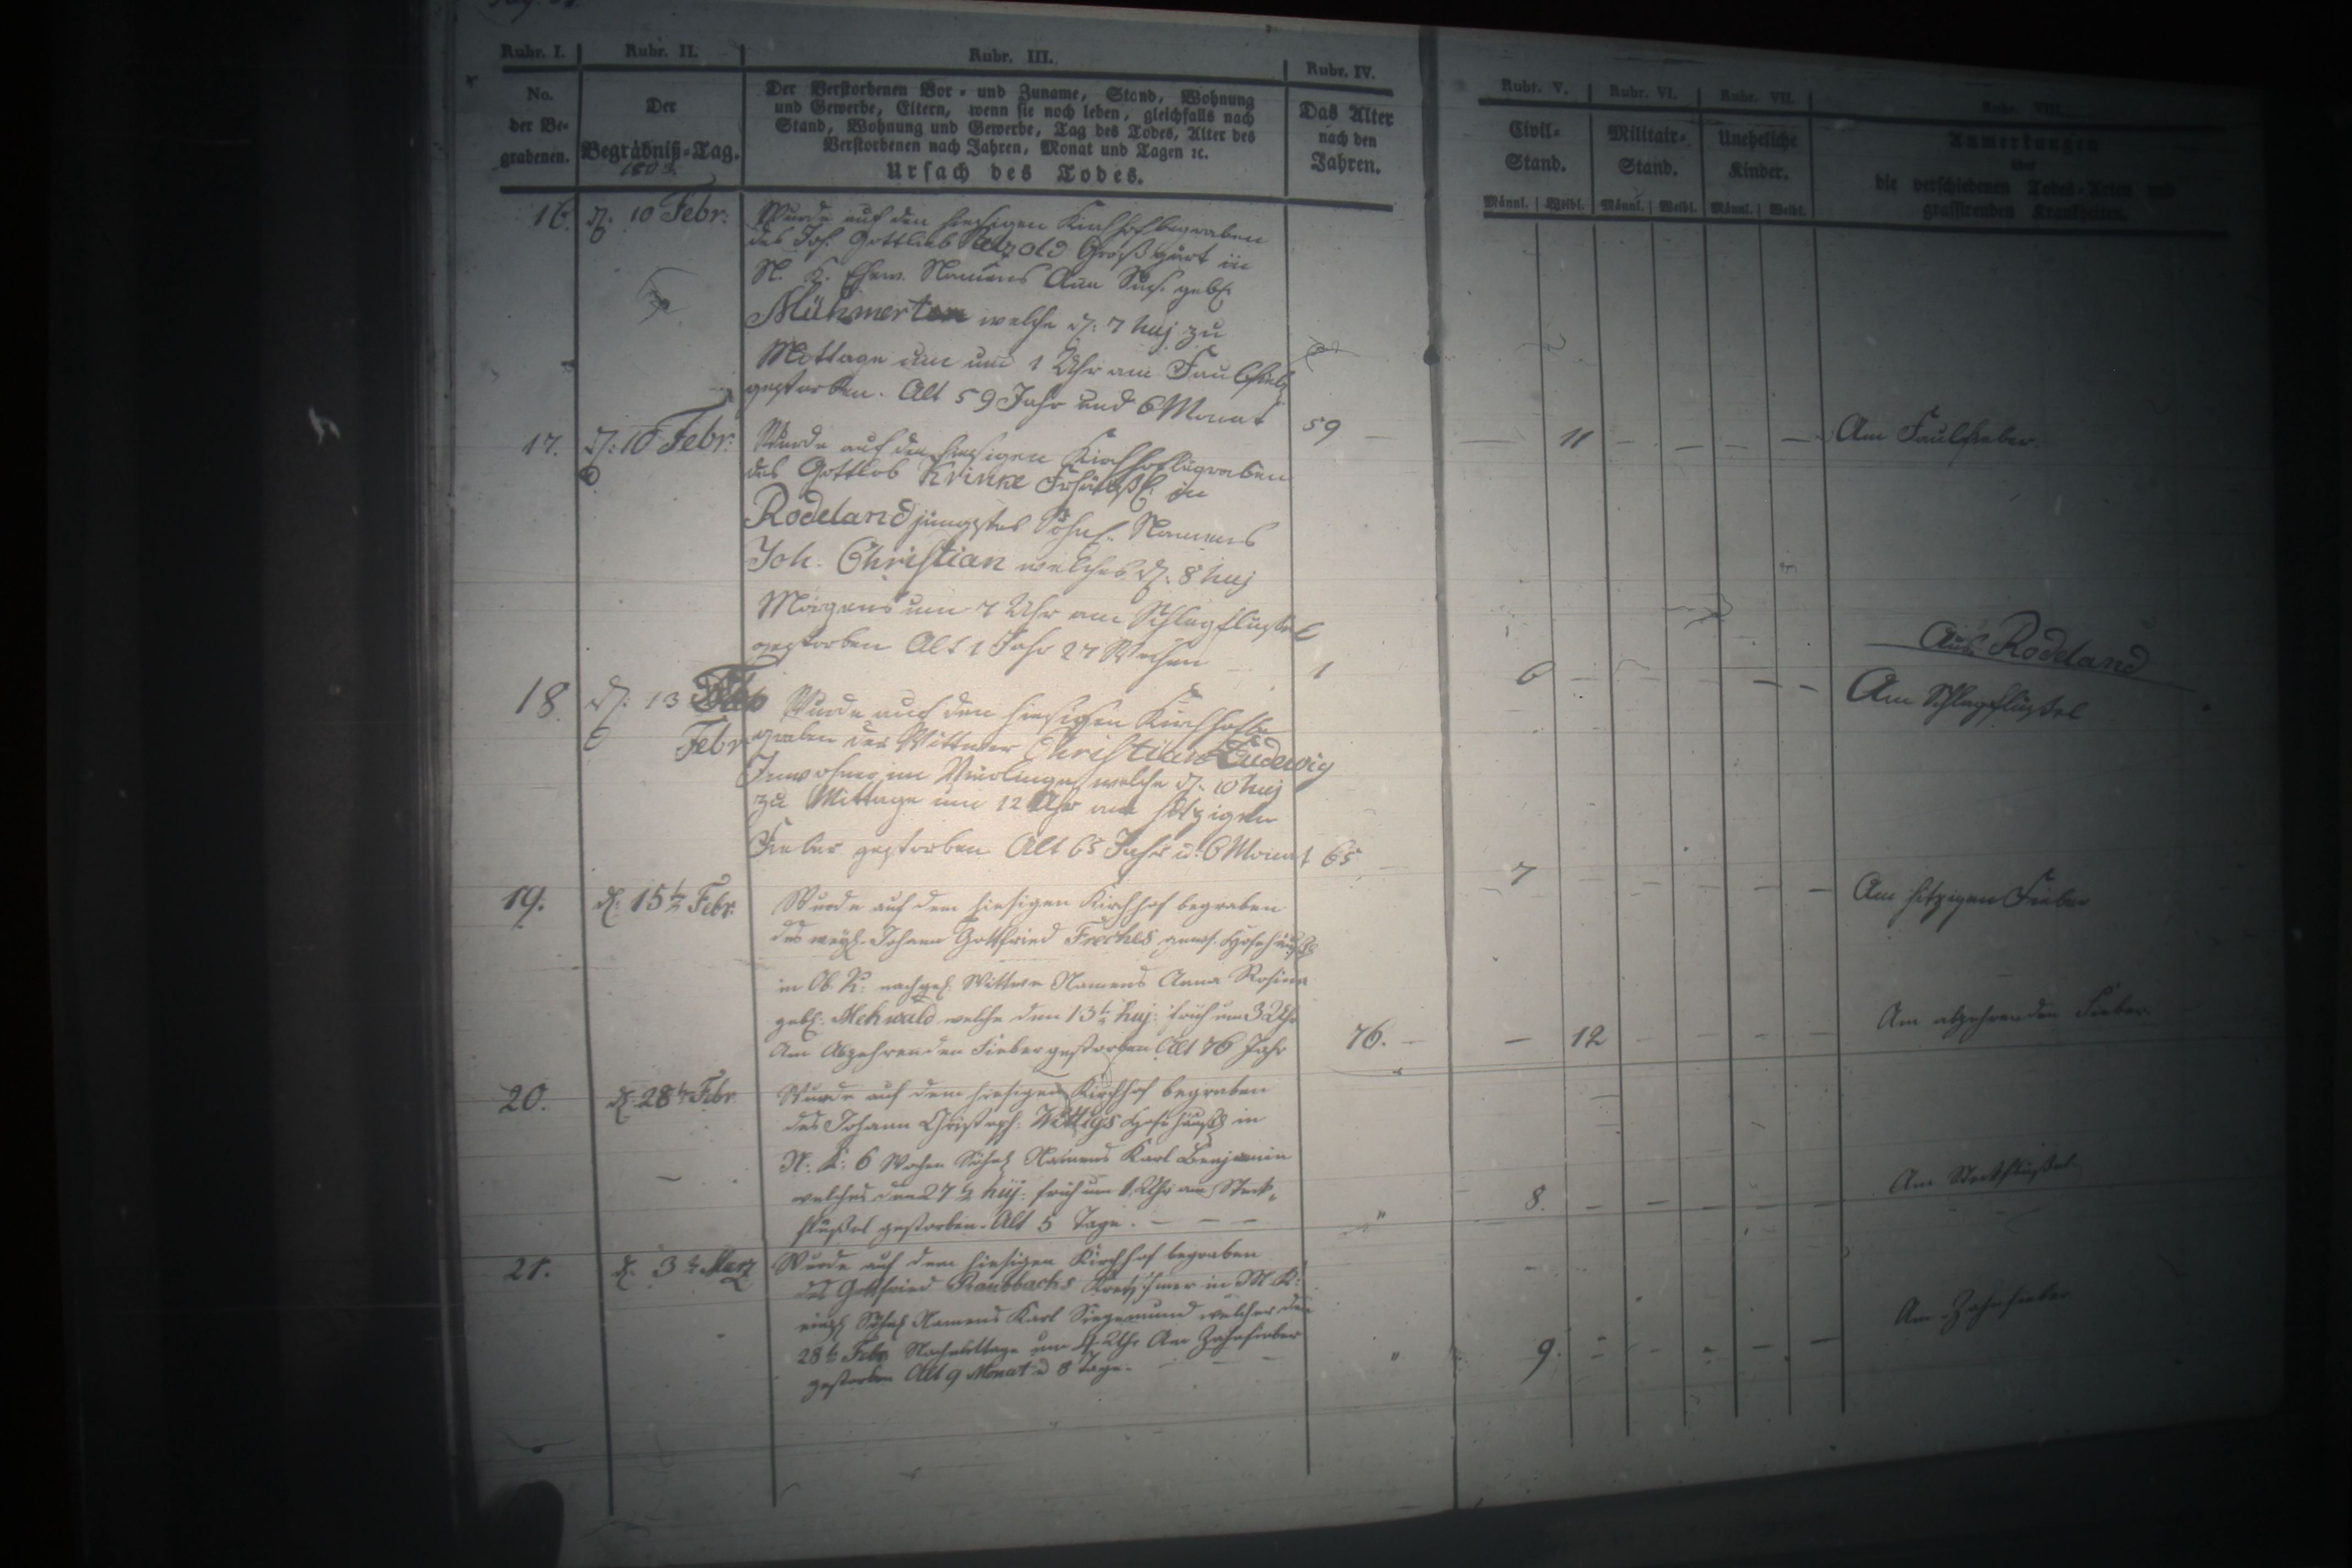 Rubr. I. Rubr. II. Rubr. III. Rubr. IV. Rubr. V. Rubr. VI. Rubr. VII. Rubr. VIII.
No.
der Be-
grabenen.
Der
Begräbniß-Tag.
Der Verstorbenen Vor- und Zuname, Stand, Wohnung
und Gewerbe, Eltern, wenn sie noch leben, gleichfalls nach
Stand, Wohnung und Gewerbe, Tag des Todes, Alter des
Verstorbenen nach Jahren, Monat und Tagen ꝛc.
Ursach des Todes.
Das Alter
nach den
Jahren.
Civil-
Stand.
Militair-
Stand.
Uneheliche
Kinder.
Anmerkungen
über
die verschiedenen Todes-Arten und
grassirenden Krankheiten.
Männl. Weibl. Männl. Weibl. Männl. Weibl.
16. d. 10 Febr: Wurde auf den hiesigen Kirchhof begraben
des Joh. Gottlieb Großgärt in
N. K. Ehew. Namens Ann Sus. geb.
welche d. 7 huj zu
Mittage um 1 Uhr am Faulfieber
gestorben. Alt 59 Jahr und 6 Monat 59 11 Am Faulfieber.
17. d. 10 Febr: Wurde auf den hiesigen Kirchhof begraben
des Gottlob Krinke in
Rodeland jüngstes Söhnl. Namens
Joh. Christian welches d. 8 huj
Morgens um 7 Uhr am Schlagflußel
gestorben Alt 1 Jahr 27 Wochen 1 6
Aus Rodeland
Am Schlagflußel
18. d. 13 Febr Wurde auf den hiesigen Kirchhof be
graben der Wittwer Christian Ludewig
Inwohner im welche d. 10 huj
zu Mittage um 12 Uhr am hitzigen
Fieber gestorben Alt 65 Jahr u. 6 Monat 65 7 Am hitzigen Fieber
19. d. 15t Febr. Wurde auf dem hiesigen Kirchhof begraben
des weyl. Johann Gottfried Freches
in Ob. K: nachgel. Wittwe Namens Anna Rosina
geb. Mehwald welche den 13t huj: früh um 3 Uhr
Am Abzehrenden Fieber gestorben Alt 76 Jahr 76. 12 Am abzehrenden Fieber.
20. d. 28t Febr. Wurde auf dem hiesigen Kirchhof begraben
des Johann Christoph: Wittigs in
N. K: 6 Wochen Söhnl Namens Karl Benjamin
welches den 27t huj: früh um 1 Uhr am Steck-
flußel gestorben. Alt 5 Tage. " 8. Am Steckflußel
21. d. 3t Merz Wurde auf dem hiesigen Kirchhof begraben
des Gottfried Kretschmer in
Söhnl Namens Karl Siegemund welcher den
28t Febr Nachmittags um Uhr Am Zahnfieber
gestorben Alt 9 Monat u 8 Tage. " 9. Am Zahnfieber